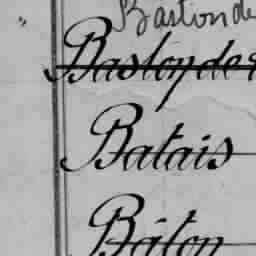 Bastonde
Bastonder
Batais
Bâton